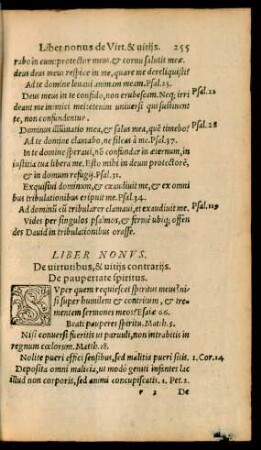 Liber nonus de Virt. & uitijs. 255
rabo in eum: protector meus, & cornu salutis meæ.
deus deus meus respice in me, quare me dereliquisti?
Ad te domine leuaui animam meam. Psal. 23.
Deus meus in te confido, non erubescam. Neq; irri Psal. 12
deant me inimici mei: etenim uniuersi qui sustinent
te, non confundentur.
Dominus illuminatio mea, & salus mea, quē timebo? Psal. 28
Ad te domine clamabo, ne sileas à me. Psal. 37.
In te domine speraui, nō confundar in æternum, in
iustitia tua libera me. Esto mihi in deum protectorē,
& in domum refugij. Psal. 31.
Exquisiui dominum, & exaudiuit me, & ex omni
bus tribulationibus eripuit me. Psal. 34.
Ad dominū cū tribularer clamaui, et exaudiuit me. Psal. 119
Vides per singulos psal'mos, & firmè ubiq; offen
des Dauid in tribulationibus orasse.
LIBER NONVS.
De uirtutibus, & uitijs contrarijs.
De paupertate spiritus.
SVper quem requiescet spiritus meus? ni-
si super humilem & contritum, & tre
mentem sermones meos? Esaiæ 66.
Beati pauperes spiritu. Matth. 5.
Nisi conuersi fueritis ut paruuli, non intrabitis in
regnum cœlorum. Matth. 18.
Nolite pueri effici sensibus, sed malitia pueri sitis. 1. Cor. 14
Deposita omni malicia, ut modò geniti infantes lac
illud non corporis, sed animi concupiscatis. 1. Pet. 2
De